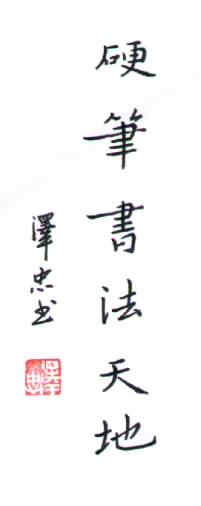 硬筆書法天地
澤忠书